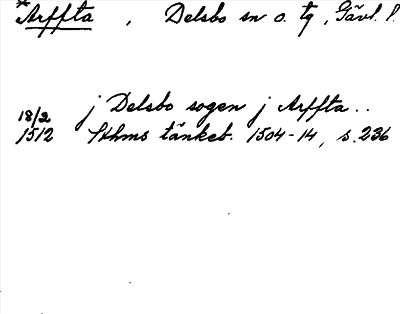 *Arffta, Delsbo sn o. tg, Gävl. l.
j Delsbo sogen j Arffta..
18/2 1512 Sthms tänkeb. 1504-14, s. 236